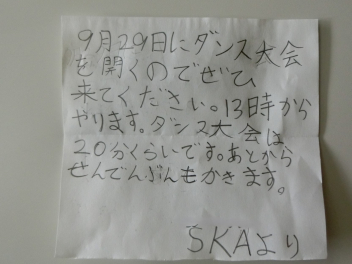 9月29日にダンス大会
を開くのでぜひ
来てください。13時から
やります。ダンス大会は、
20分くらいです。あとから
せんでんぶんもかきます。
SKAより